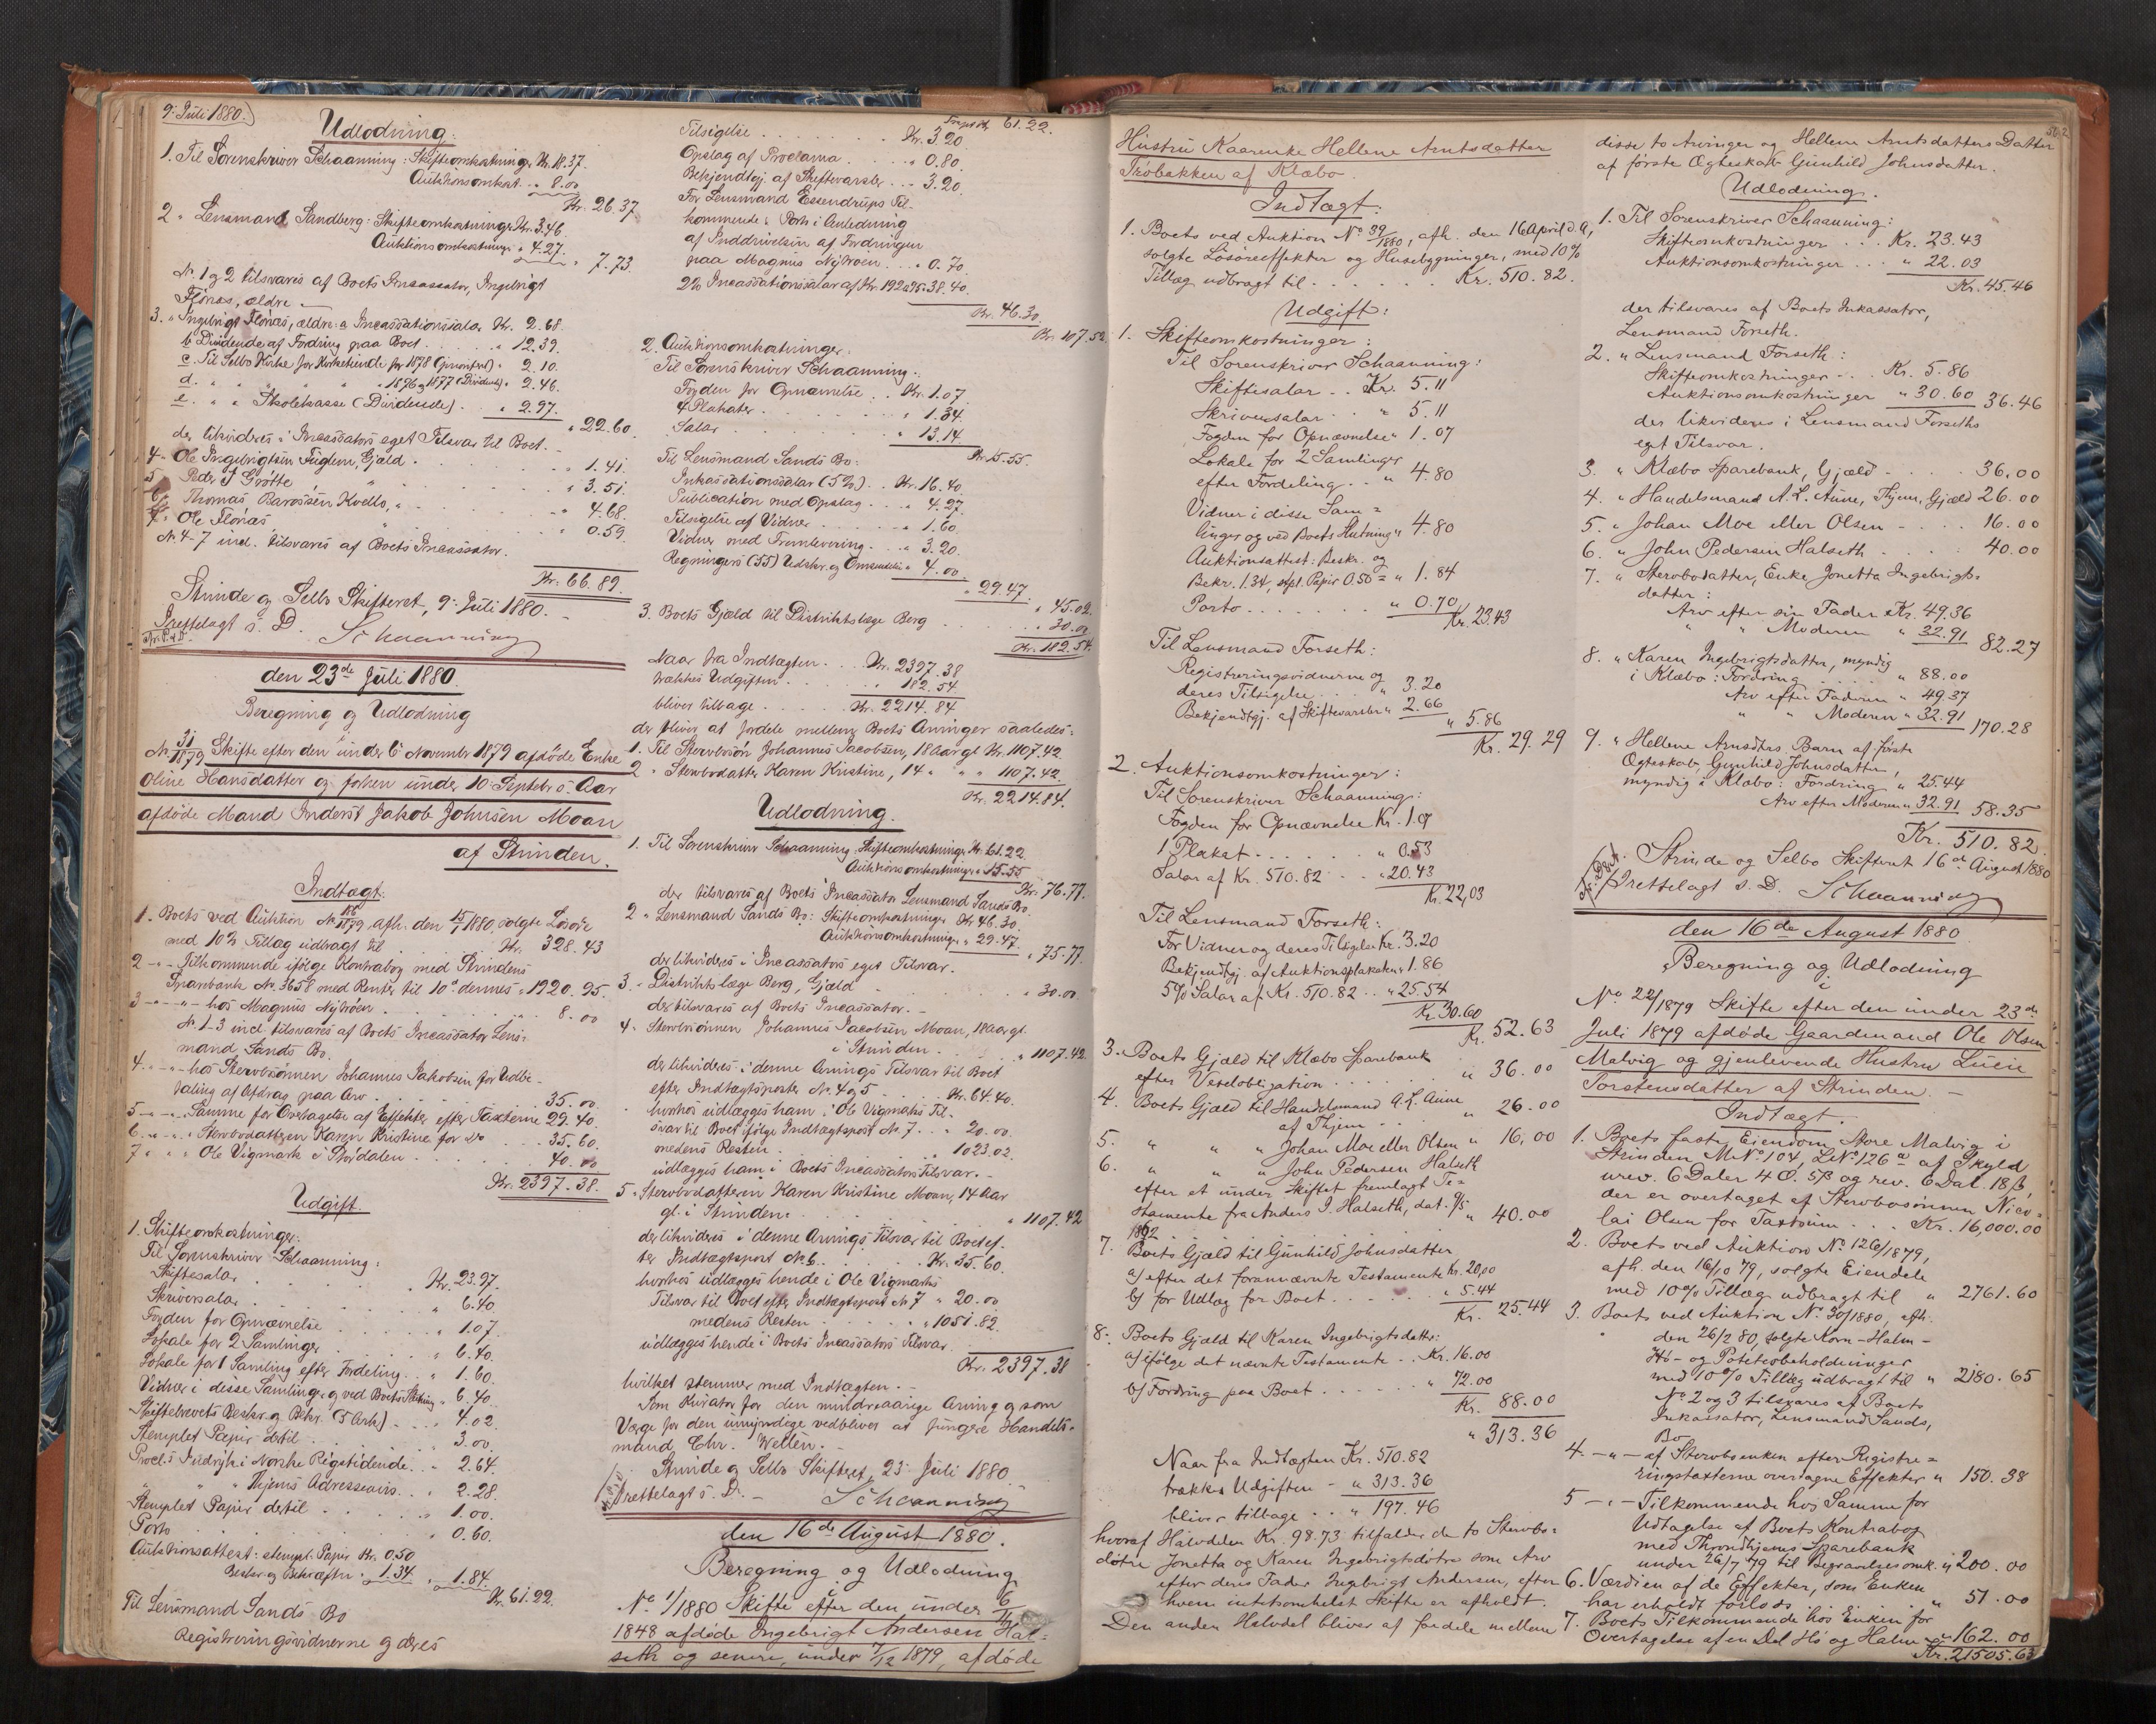 9: Juli 1880.
Udlodning:
1. Til Sorenskriver Schaanning: Skifteomkostninger Kr. 18.37.
Auktionsomkost. „ 8.00
Kr. 26.37
2 „ Lensmand Sandberg: Skifteomkostninger Kr. 3.46
Auktionsomkostninger „ 4.27.
„ 7.73.
Nr. 1 og 2 tilsvares af Boets Incassator, Ingebrigt
Flönæs, ældre.
3. „ Ingebrigt Flönæs, ældre: a Incassationssalar Kr. 2.68.
b Dividende af Fordring paa Boet . . „ 12.39.
c. Til Selbo Kirke for Kirketiende for 1878 (prioriteret) „ 2.10.
d. „ „ „ „ „ 1876 og 1877 (Dividende) „ 2.46.
e. „ „ Skolekasse (Dividende) . . „ 2.97.
„ 22.60.
der likvideres i Incassators eget Tilsvar til Boet.
4 „ Ole Ingebrigtsen Fuglem, Gjæld . . „ 1.41.
5 „ Peder J Grötte, „ . . „ 3.51.
6 „ Thomas Bardssen Kvello, „ . . „ 4.68.
7 „ Ole Flönæs „ . . „ 0.59.
Nr. 4-7 incl. tilsvares af Boets Incassator.
Kr. 66.89.
Strinde og Selbo Skifteret, 9: Juli 1880.
Fremlagt s. D. Schaanning
den 23de Juli 1880.
Beregning og Udlodning
i
Nr. 31/1879 Skifte efter den under 6 November 1879 afdöde Enke
Oline Hansdatter og forhen under 10 Septebr s. Aar
afdöde Mand Inderst Jakob Johnsen Moan
af Strinden.
Indtægt:
1. Boets ved Auktion Nr. 186/1879, afh. den 15/1 1880, solgte Lösöre
med 10% Tillæg udbragt til . . Kr. 328.43
2 -„- Tilkommende ifölge Kontrabog med Strindens
Sparebank Nr. 3658 med Renter til 10de dennes „ 1920.95.
3 -„-„- hos Magnus Nybroen . . „ 8.00
Nr. 1-3 incl tilsvares af Boets Incassator Lens-
mand Sands Bo.
4. -„-„- hos Stervbosönnen Johannes Jakobsen for Udbe-
taling af Afdrag paa Arv . . 35.00.
5-„-„- Samme for Overtagelse af Effekter efter Taxterne 29.40.
6.-„-„- Stervbodatteren Karen Kristine for Do . . . 35.60.
7 „ „ „ Ole Vigmark i Stördalen . . . 40.00
Kr. 2397.38.
Udgift.
1. Skifteomkostninger:
Til Sorenskriver Schaanning:
Skiftesalar . . Kr. 23.97.
Skriversalar . . „ 6.40.
Fogden for Opnævnelse . . „ 1.07.
Lokale for 2 Samlinger . . „ 6.40.
Lokale for 1 Samling efter Fordeling . . „ 1.60.
Vidner i disse Samlinger og ved Boets Slutning „ 6.40
Skiftebrevets Beskr. og Bekr. (3 Ark) . . „ 4.02
Stemplet Papir dertil . . „ 3.00.
Procl.s Indrykn i Norske Rigstidende . . „ 2.64.
„ „ „ Thjems Adresseavis . . „ 2.28.
Stemplet Papir dertil . . „ 1.00.
Porto . . „ 0.60.
Auktionsattest: stempl. Papir Kr. 0.50
Beskr. og Bekræftn. „ 1.34. „ 1.84.
Kr. 61.22.
Til Lensmand Sands Bo
Registreringsvidnerne og deres
Transport Kr. 61.22.
Tilsigelse . . Kr. 3.20
Opslag af Proclama . . „ 0.80.
Bekjendtgj. af Skiftevarsler . . 3.20.
For Lensmand Essendrups Til-
kommende: Porto i Anledning
af Inddrivelsen af Fordringen
paa Magnus Nybroen . . „ 0.70.
2% Incassationssalar af Kr. 1920.95 38.40.
Kr. 46.30.
Kr. 107.52.
2. Auktionsomkostninger:
Til Sorenskriver Schaanning:
Fogden for Opnævnelse . . Kr. 1.07.
4 Plakater . . „ 1.34.
Salar . . „ 13.14.
Kr. 15.55.
Til Lensmand Sands Bo:
Inkassationssalar (5%) . . Kr. 16.40.
Publication med Opslag . . „ 4.27.
Tilsigelse af Vidner . . „ 1.60.
Vidner med Fremlevering . . „ 3.20.
Regningers (55) Udskr. og Omsendelse „ 4.00.
„ 29.47.
„ 45.02.
3. Boets Gjæld til Distriktslæge Berg . . „ 30.00
Kr. 182.54.
Naar fra Indtægten . . Kr. 2397.38
trækkes Udgiften . . „ 182.54
bliver tilbage . . Kr. 2214.84
der bliver at fordele mellem Boets Arvinger saaledes:
1. Til Stervbosön Johannes Jacobsen, 18 Aar gl. Kr. 1107.42.
2 „ Stervbodatter Karen Kristine, 14 „ „ „ 1107.42.
Kr. 2214.84.
Udlodning.
1. Til Sorenskriver Schaanning, Skifteomkostninger Kr. 61.22.
Auktionsomkostninger „ 15.55
Kr. 76.77.
der tilsvares af Boets Incassator Lensmand Sands Bo.
2 „ Lensmand Sands Bo: Skifteomkostninger Kr. 46.30.
Auktionsomkostninger „ 29.47.
„ 75.77.
der likvideres i Incassators eget Tilsvar.
3. „ Distriktslæge Berg, Gjæld . . „ 30.00.
der tilsvares af Boets Incassator.
4. „ Stervbosönnen Johannes Jacobsen Moan, 18 Aar gl.
i Strinden . . „ 1107.42.
der likvideres i denne Arvings Tilsvar til Boet
efter Indtægtsposter Nr. 4 og 5 . . Kr. 64.40.
hvorhos udlægges ham i Ole Vigmarks Til-
svar til Boet ifölge Indtægtspost Nr. 7 . . „ 20.00.
medens Resten . . „ 1023.02.
udlægges ham i Boets Incassators Tilsvar.
5 „ Stervbodatteren Karen Kristine Moan, 14 Aar
gl. i Strinden . . „ 1107.42
der likvideres i denne Arvings Tilsvar til Boet ef-
ter Indtægtspost Nr. 6 . . Kr. 35.60.
hvorhos udlægges hende i Ole Vigmarks
Tilsvar til Boet efter Indtægtspost Nr. 7 „ 20.00
medens Resten . . „ 1051.82.
udlægges hende i Boets Incassators Tilsvar.
Kr. 2397.38
hvilket stemmer med Indtægten.
Som Kurator for den mindreaarige Arving og som
Værge for den umyndige vedbliver at fungere Handels-
mand Chr. Wettén.
Strinde og Selbo Skifteret, 23: Juli 1880
Fremlagt s. D. Schaanning
den 16de August 1880.
Beregning og Udlodning
i
No 1/1880 Skifte efter den under 6/
1848 afdöde Ingebrigt Andersen Hal=
seth og senere, under 7/12 1879, afdöde
502
Hustru Kaarenke Hellene Arntsdatter
Tröbakken af Klæbo.
Indtægt:
1. Boets ved Auktion No 39/1880, afh. den 16 April d. A.,
solgte Lösöreeffekter og Husebygninger, med 10%
Tillæg udbragt til . . Kr. 510.82.
Udgift:
1. Skifteomkostninger:
Til Sorenskriver Schaanning:
Skiftesalar . . Kr. 5.11
Skriversalar . . „ 5.11
Fogden for Opnævnelse „ 1.07
Lokale for 2 Samlinger
efter Fordeling . . „ 4.80
Vidner i disse Sam=
linger og ved Boets Slutning „ 4.80
Auktionsattest: Beskr. og
Bekr. 1.34, stpl. Papir 0.50 = „ 1.84
Porto . . „ 0.70
Kr. 23.43
Til Lensmand Forseth:
Registreringsvidnerne og
deres Tilsigelse . . „ 3.20
Bekjendtgj. af Skiftevarsler „ 2.66
„ 5.86
Kr. 29.29
2. Auktionsomkostninger:
Til Sorenskriver Schaanning:
Fogden for Opnævnelse Kr. 1.07
1 Plakat . . „ 0.53
Salar af Kr. 510.82 . . „ 20.43
Kr. 22,03
Til Lensmand Forseth:
For Vidner og deres Tilsigelse Kr. 3.20
Bekjendtgj. af Auktionsplakaten „ 1.86
5% Salar af Kr. 510.82 . . „ 25.54
Kr. 30.60
Kr. 52.63
3. Boets Gjæld til Klæbo Sparebank
efter Vexelobligation . . „ 36.00
4. Boets Gjæld til Handelsmand A. L. Aune
af Thjem . . „ 26.00
5. „ „ „ Johan Moe eller Olsen „ 16,00
6. „ „ „ John Pedersen Halseth
efter et under Skiftet fremlagt Te=
stamente fra Anders J. Halseth, dat. 9/5
1862 . . „ 40.00
7. Boets Gjæld til Gunhild Johnsdatter
a) efter det forannævnte Testamente Kr. 20,00
b) for Udlæg for Boet . . „ 5.44
Kr. 25.44
8. Boets Gjæld til Karen Ingebrigtsdatter:
a) ifölge det nævnte Testamente . . Kr. 16.00
b) Fordring paa Boet . . „ 72.00
Kr. 88.00
„ 313.36
Naar fra Indtægten Kr. 510.82
trækkes Udgiften „ 313.36
bliver tilbage . . „ 197.46
hvoraf Halvdelen Kr. 98.73 tilfalder de to Stervbo=
döttre Jonetta og Karen Ingebrigtsdötre som Arv
efter deres Fader Ingebrigt Andersen, efter
hvem intetsomhelst Skifte er afholdt.
Den anden Halvdel bliver at fordele mellem
disse to Arvinger og Hellene Arntsdatters Datter
af förste Ægteskab Gunhild Johnsdatter.
Udlodning.
1. Til Sorenskriver Schaanning:
Skifteomkostninger . . . Kr. 23.43
Auktionsomkostninger . . „ 22.03
Kr. 45.46
der tilsvares af Boets Inkassator,
Lensmand Forseth.
2. „ Lensmand Forseth:
Skifteomkostninger . . Kr. 5.86
Auktionsomkostninger „ 30.60 36.46
der likvideres i Lensmand Forseths
eget Tilsvar.
3. „ Klæbo Sparebank, Gjæld . . 36,00
4. „ Handelsmand A. L. Aune, Thjem, Gjæld 26.00
5. „ Johan Moe eller Olsen . . 16.00
6. „ John Pedersen Halseth . . 40.00
7. „ Stervbodatter, Enke Jonetta Ingebrigts-
datter:
Arv efter sin Fader Kr. 49.36
„ „ Moderen „ 32.91 82.27
8. „ Karen Ingebrigtsdatter, myndig
i Klæbo: Fordring . . „ 88.00
Arv efter Faderen „ 49.37
„ „ Moderen „ 32.91 170.28
9. „ Hellene Arntsdtrs. Barn af förste
Ægteskab, Gunhild Johnsdatter,
myndig i Klæbo: Fordring „ 25.44
Arv efter Moderen „ 32.91 58.35
Kr. 510.82.
Strinde og Selbo Skifteret 16de August 1880
Fremlagt s. D. Schaanning
den 16de August 1880
Beregning og Udlodning
i
No 22/1879 Skifte efter den under 23de
Juli 1879 afdöde Gaardmand Ole Olsen
Malvig og gjenlevende Hustru Lucie
Torstensdatter af Strinden.
Indtægt.
1. Boets faste Eiendom Store Malvig i
Strinden M No 104, L No 126 a af Skyld
urev. 6 Daler 4 O. 5 ß og rev. 6 Dal. 18 ß,
der er overtaget af Stervbosönnen Nico=
lai Olsen for Taxtsum . . Kr. 16,000.00
2. Boets ved Auktion No 126/1879,
afh. den 16/10 79, solgte Eiendele
med 10% Tillæg udbragt til „ 2761.60
3. Boets ved Auktion No 30/1880, afh.
den 26/2 80, solgte Korn- Halm-
Hö- og Potetesbeholdninger
med 10% Tillæg udbragt til „ 2180.65
No 2 og 3 tilsvares af Boets
Inkassator, Lensmand Sands,
Bo
4. -„- af Stervboenken efter Registre=
ringstaxterne overtagne Effekter „ 150.38
5 -„- Tilkommende hos Samme for
Udtagelse af Boets Kontrabog
med Throndhjems Sparebank
under 26/7 79 til Begravelsesomk. „ 200.00
6. Værdien af de Effekter, som Enken
har erholdt forlods . . „ 51.00
7. Boets Tilkommende hos Enken for
Overtagelse af en Del Hö og Halm „ 162.00
Kr. 21505.63